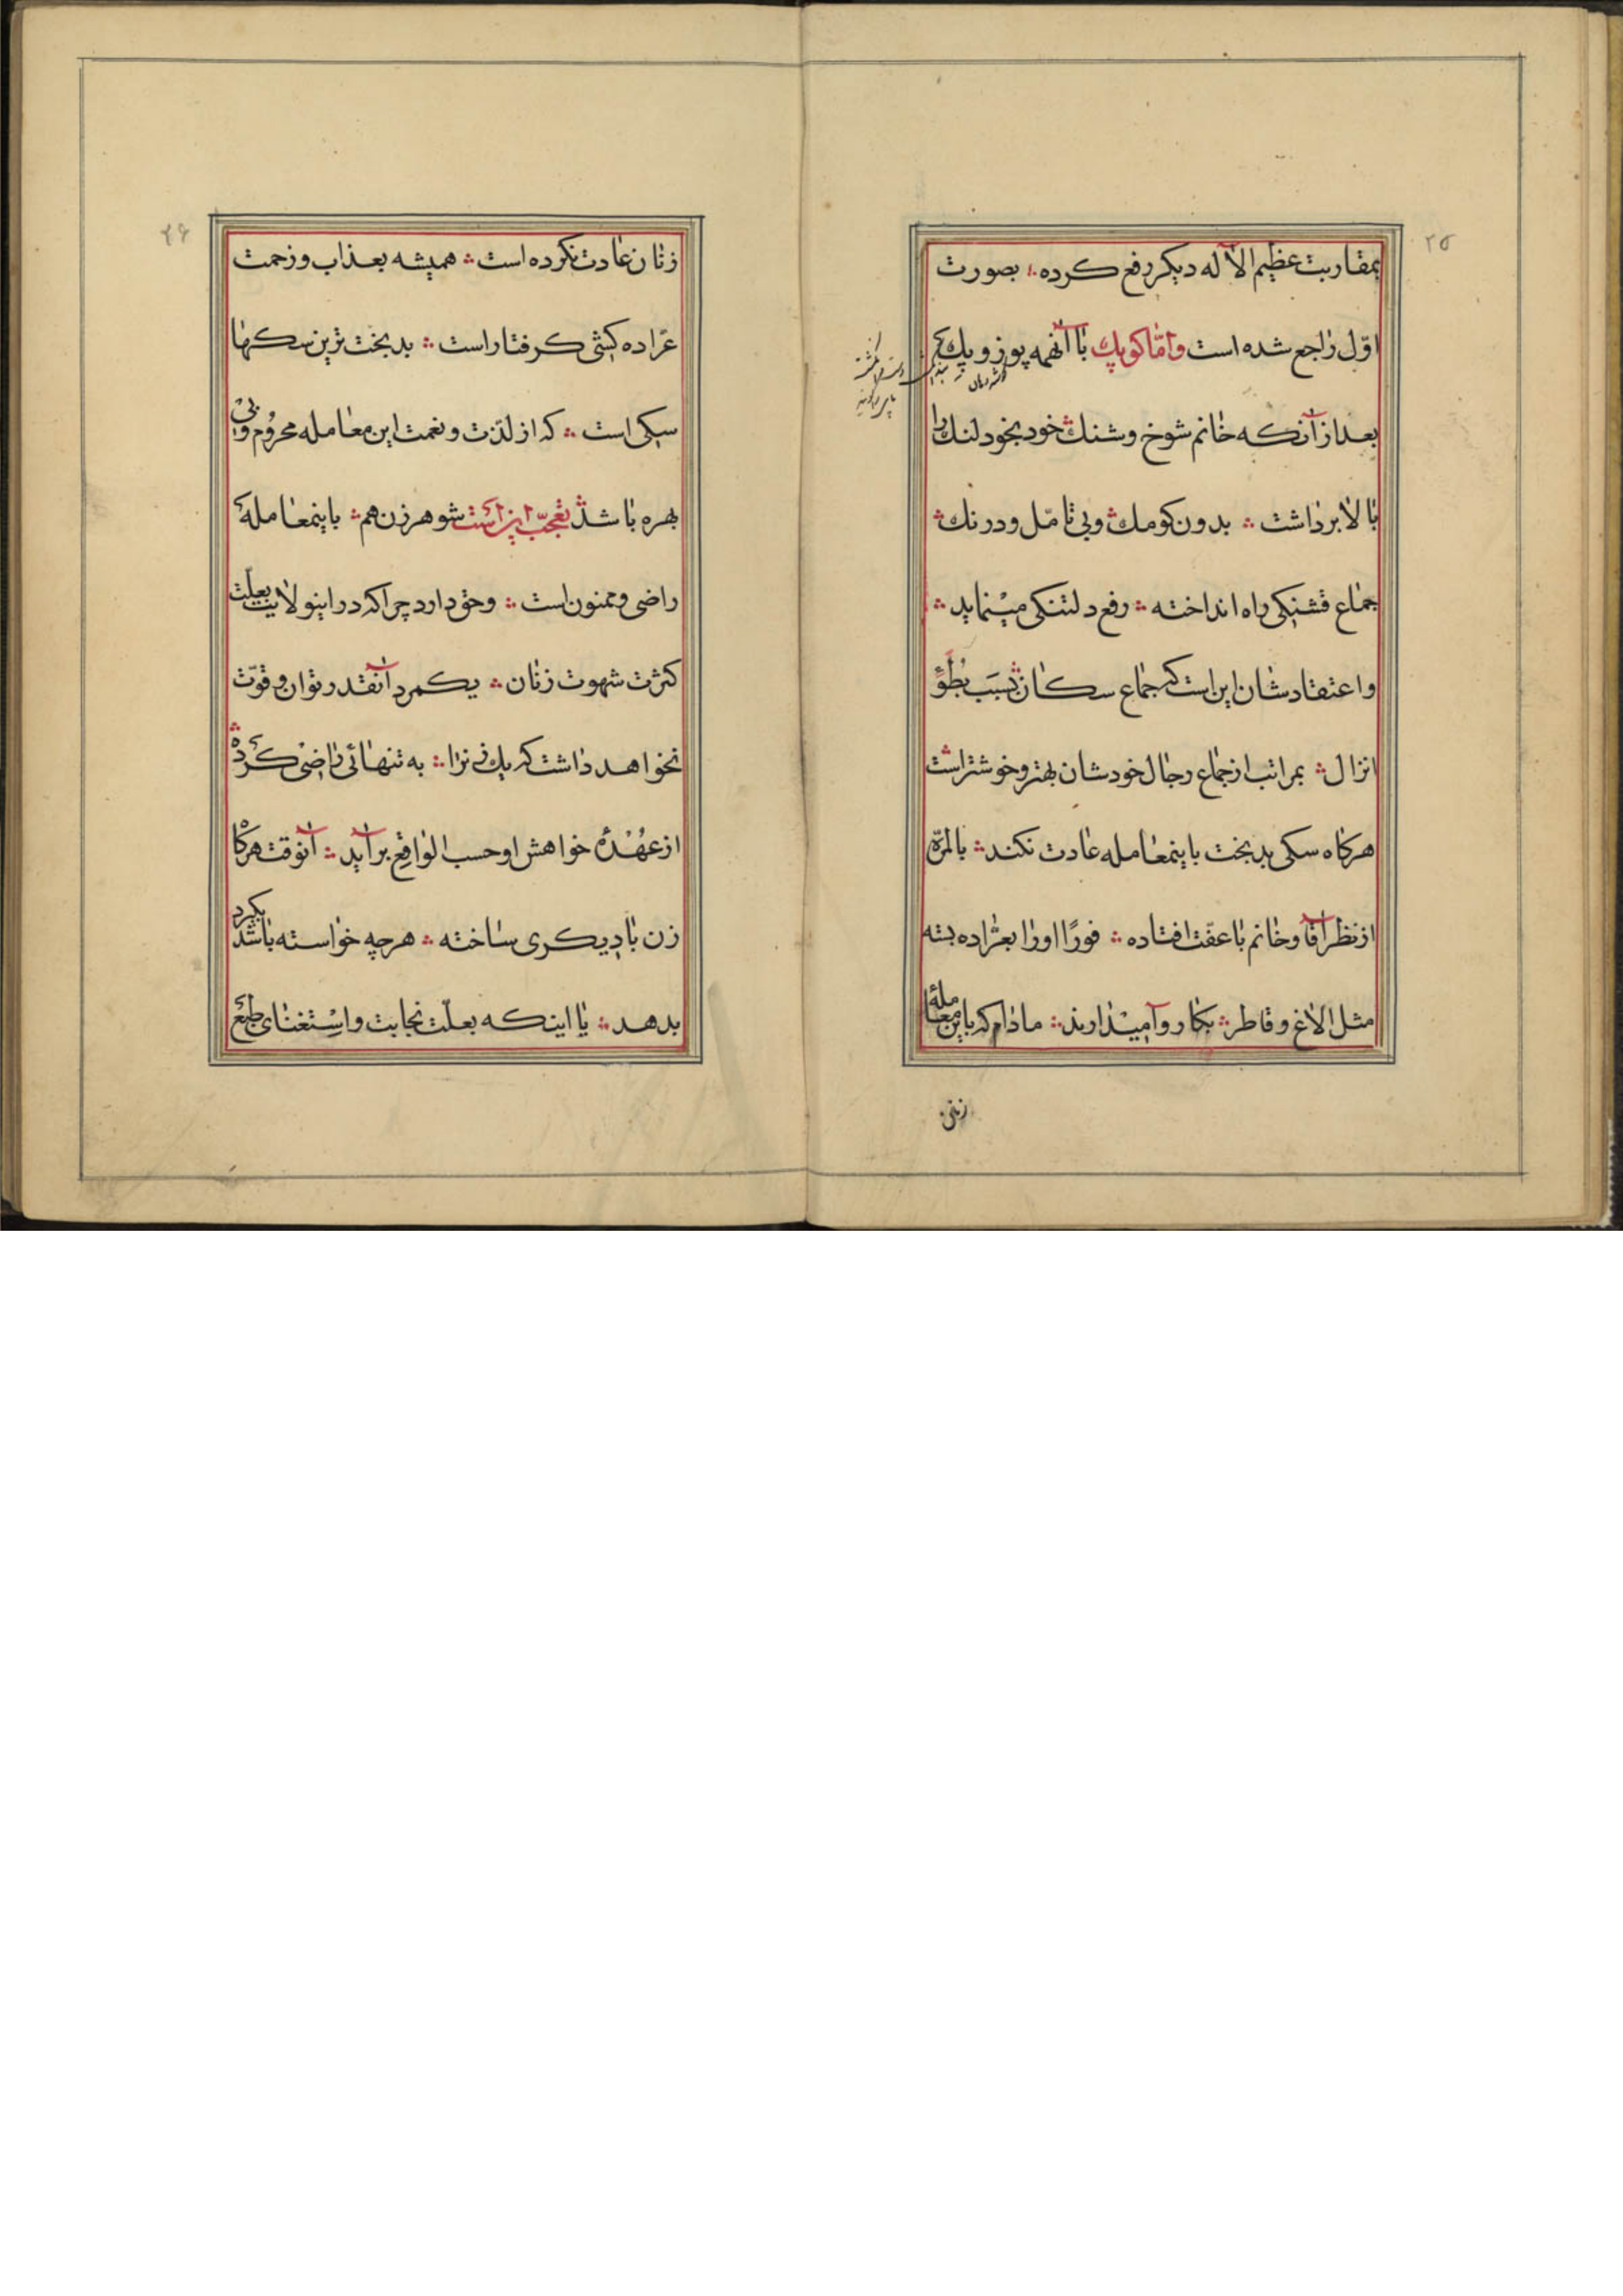 ۲۵
بمقاربت عظیم الآله دیکر رفع کرده ؞ بصورت
اوّل راجع شده است وامّا کوپک باآنهمه پوز و پک
بعد از آنکه خانم شوخ وشنک خود بخود لنک را
بالا برداشت ؞ بدون کومک وبی تامّل و درنک ؞
جماع قشنکی راه انداخته ؞ رفع دلتنکی مینماید ؞
واعتقادشان این است که جماع سکان بسبب بُطؤِ
انزال ؞ بمراتب از جماع رجال خودشان بهتر و خوشتر است
هرکاه سکی بدبخت باینمعامله عادت نکند ؞ بالمرّه
از نظر آقا وخانم باعفّت افتاده ؞ فورًا اورا بعرّاده بسته
مثل الاغ و قاطر ؞ بکار وآمیدارند ؞ مادام که باین معاملهٔ
زنان
۲۶
زنان عادت نکرده است ؞ همیشه بعذاب و زحمت
عرّاده کشی کرفتار است ؞ بدبخت ترین سکها
سکی است ؞ که از لذّت و نعمت این معامله محروم و بی
بهره باشد ؞ تعجّب این است شوهر زن هم ؞ باینمعاملهٔ
راضی وممنون است ؞ وحق دارد چراکه در اینولایت بعلّت
کثرت شهوت زنان ؞ یکمرد آنقدر توان و قوّت
نخواهد داشت که یک زنرا ؞ به تنهائی راضی کرده ؞
از عُهْدهٔ خواهش او حسب الواقع برآید ؞ آنوقت هرکاه
زن با دیکری ساخته ؞ هرچه خواسته باشد بکیرد
بدهد ؞ یا اینکه بعلّت نجابت و اسْتغنای طبع